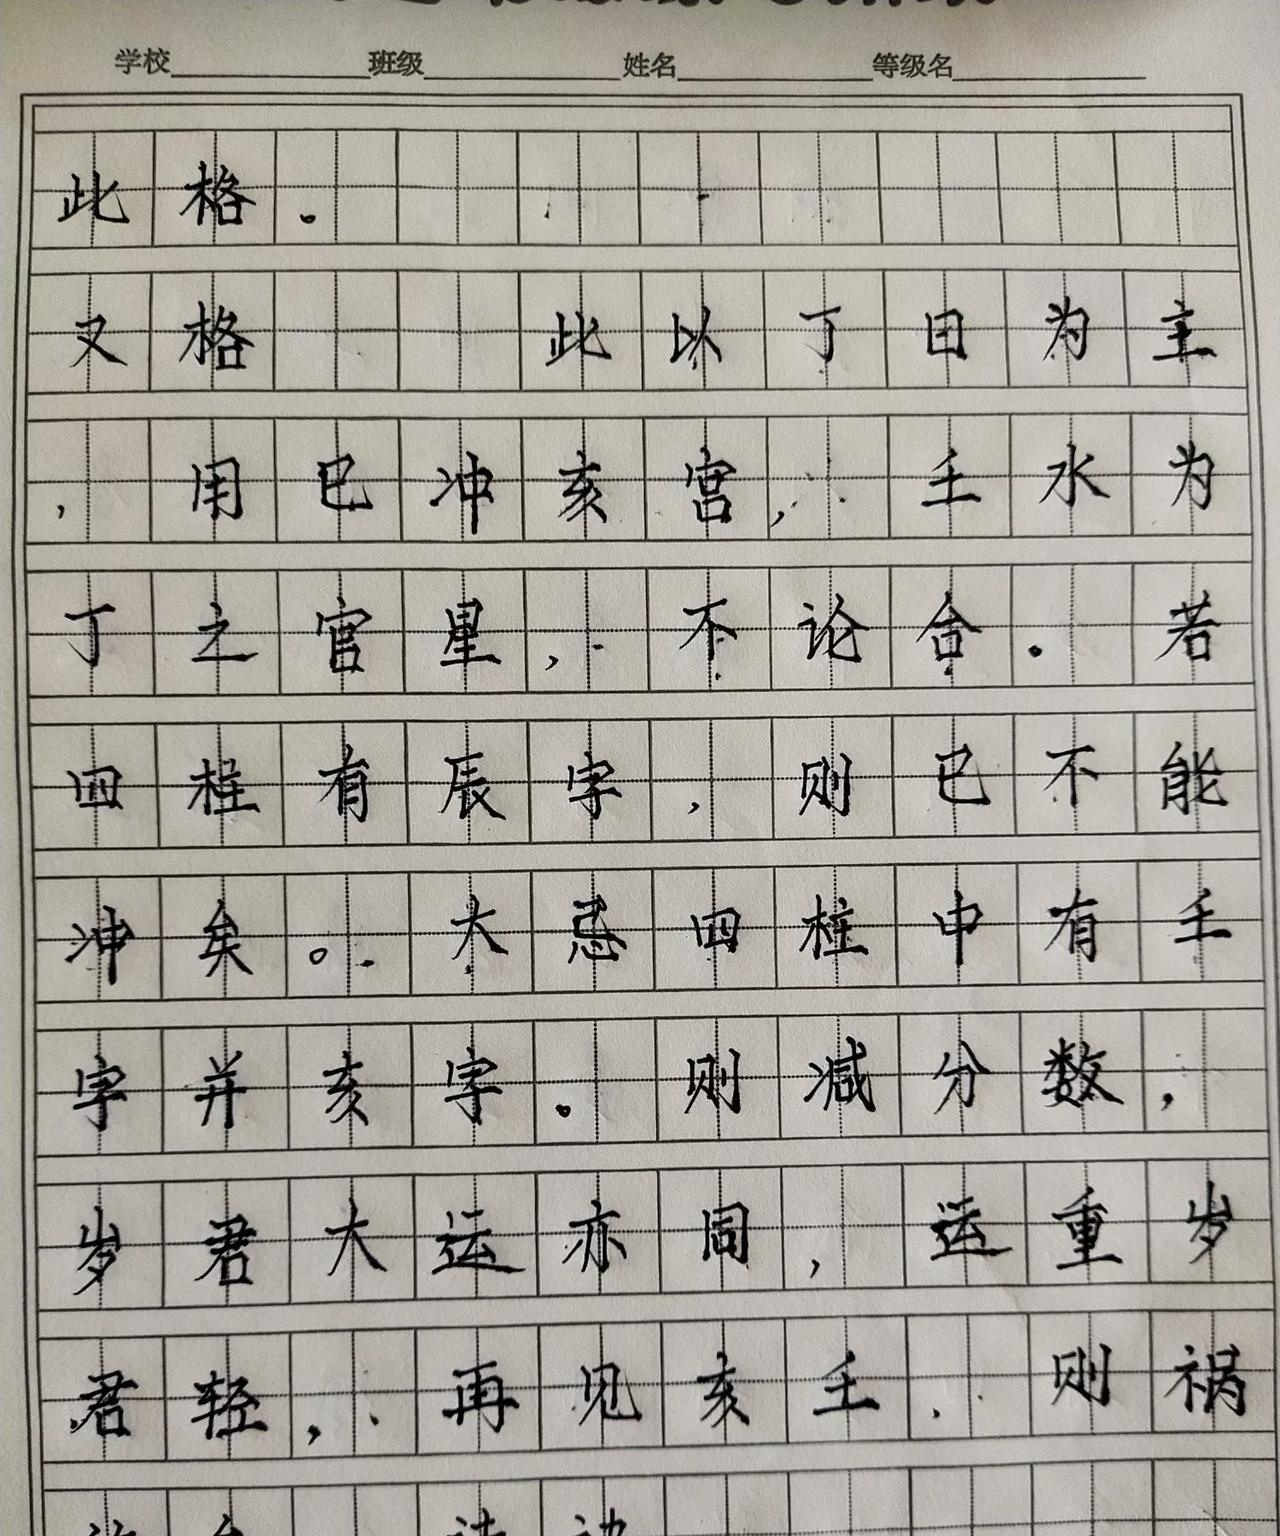 学校 班级 姓名 等级名
此格。
又格 此以丁日为主
，用巳冲亥宫，壬水为
丁之官星，不论合。若
四柱有辰字，则巳不能
冲矣。大忌四柱中有壬
字并亥字。则减分数，
岁君大运亦同，运重岁
君轻，再见亥壬，则祸